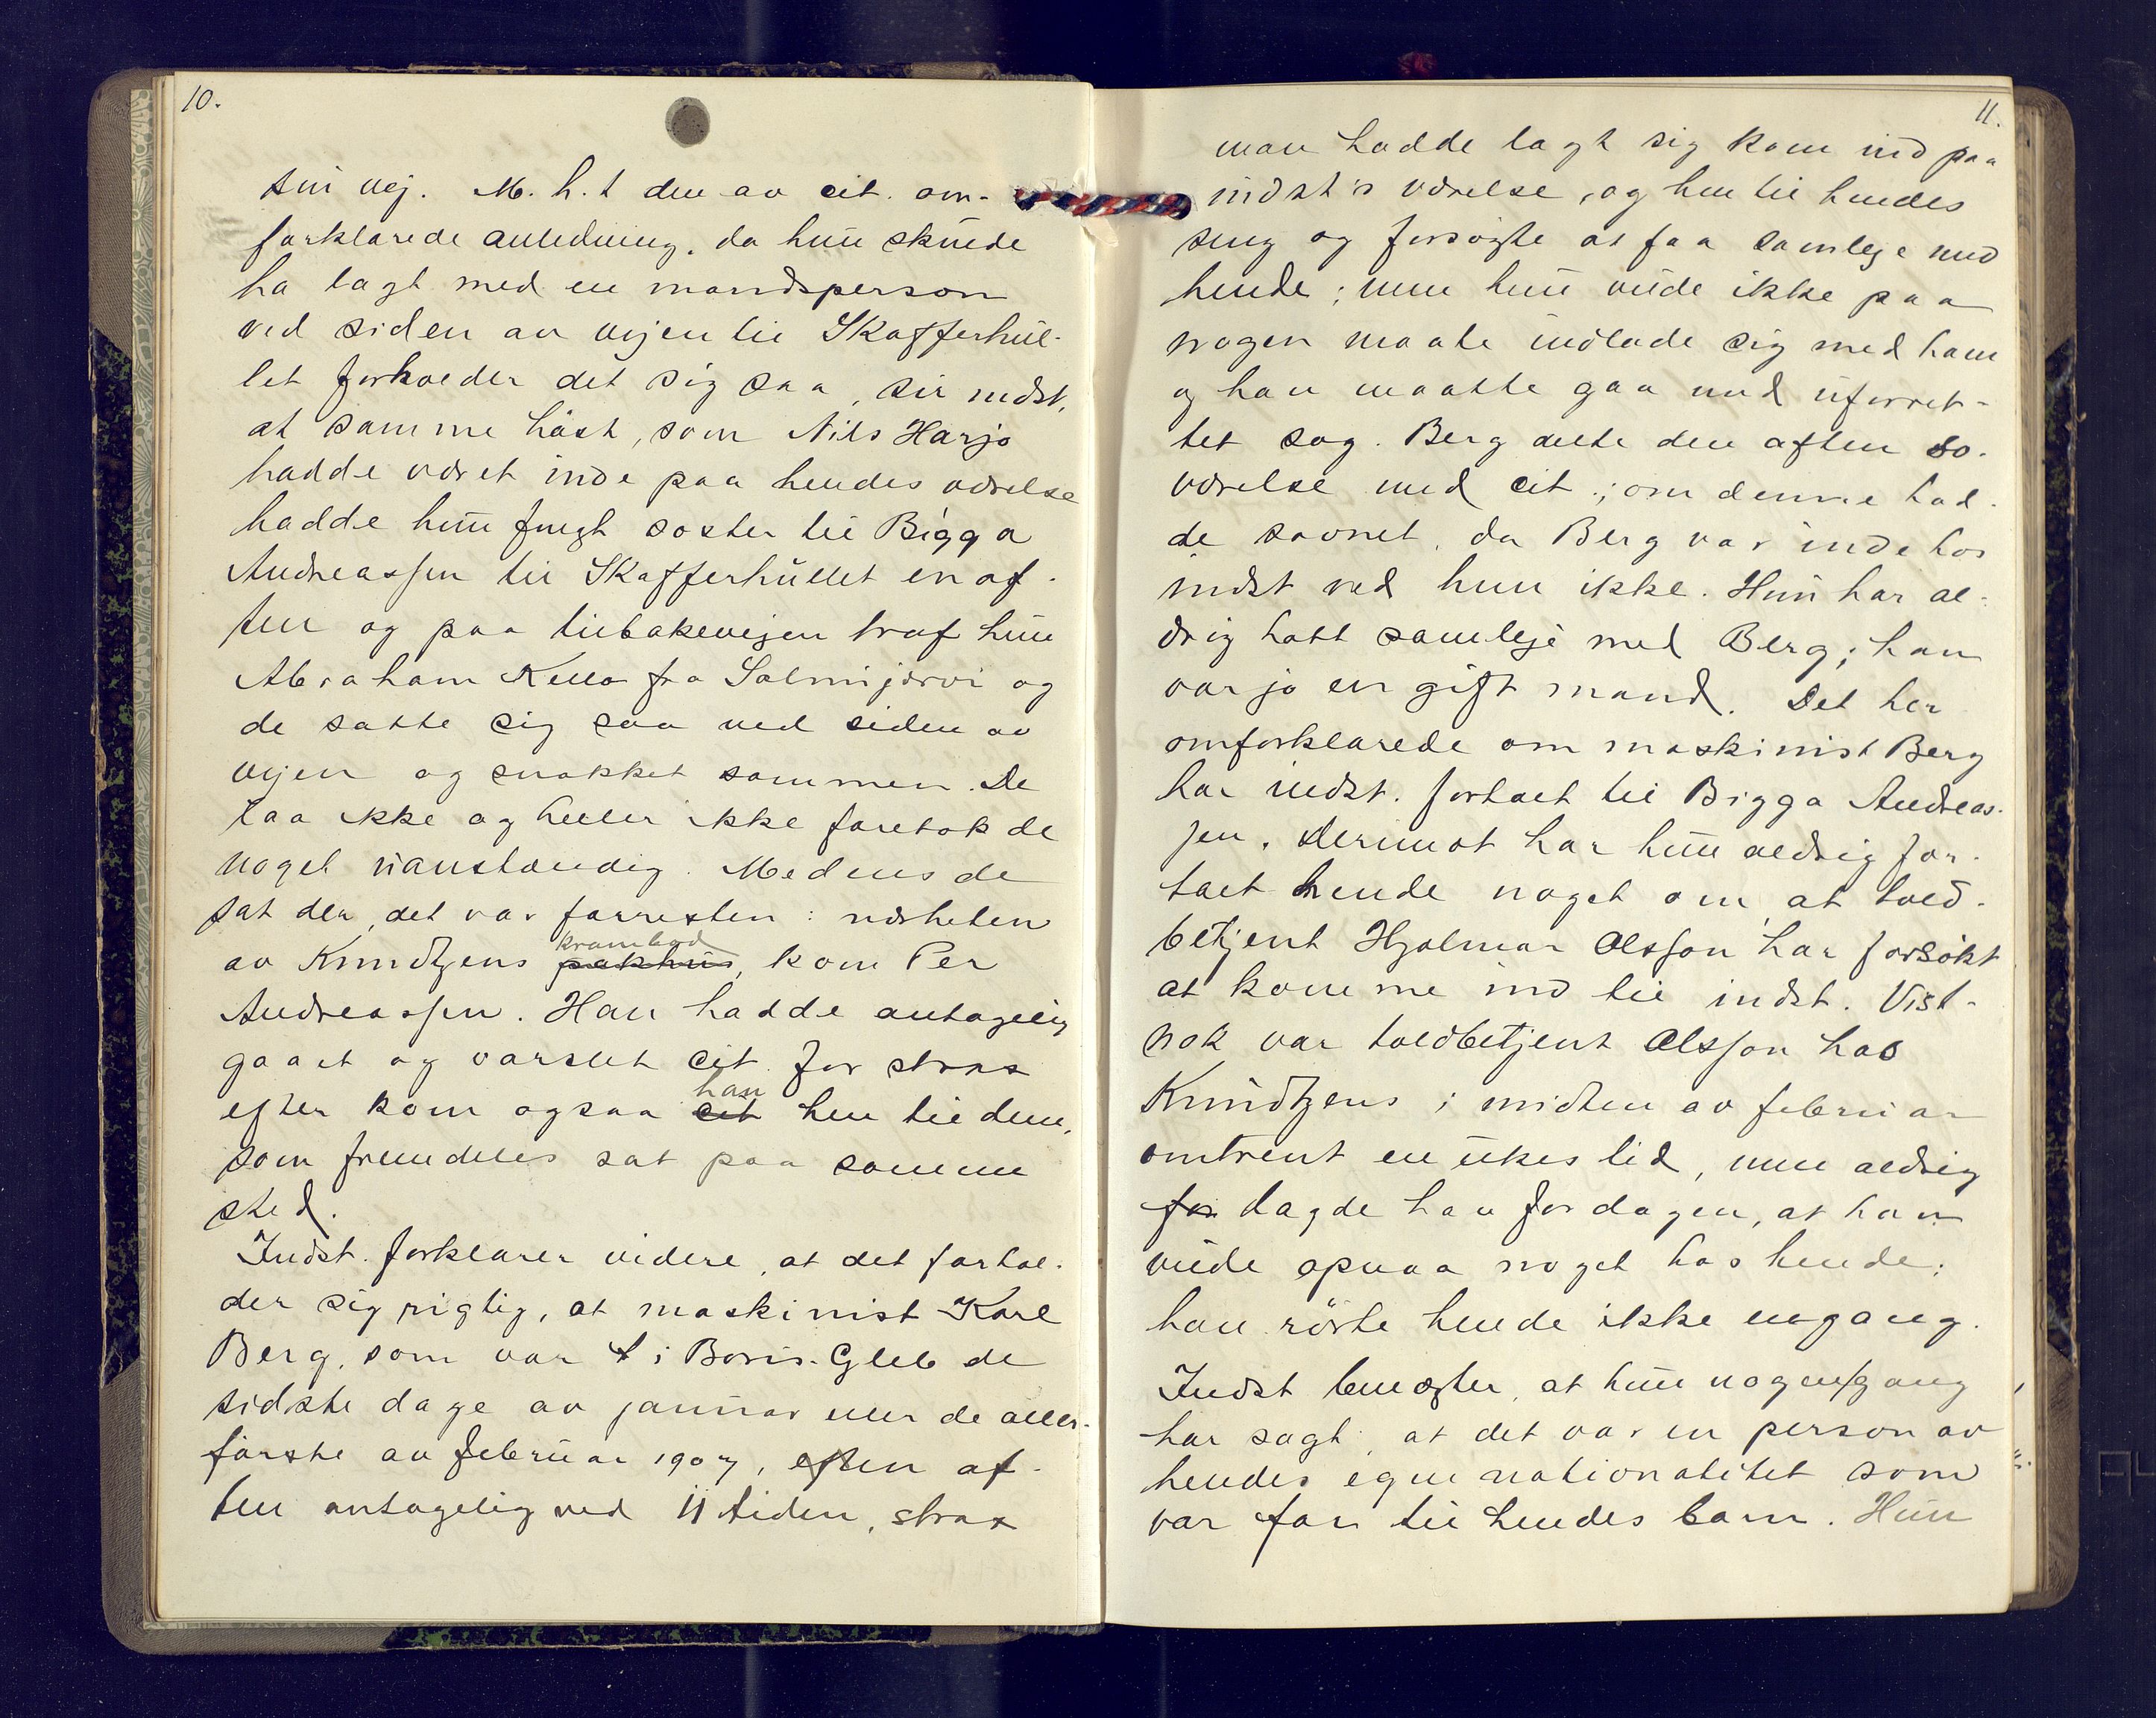 10.
sin vej. M. h. t den av cit. om-
forklarede anledning, da hun skulde
ha lagt med en mandsperson
ved siden av vejen til Skafferhul-
let forholder det sig saa, sir indst,
at samme høst, som Nils Harjo
hadde været inde paa hendes værelse
hadde hun fulgt søster til Bigga
Andreassen til Skafferhullet en af-
ten og paa tilbakevejen traf hun
Abraham Kello fra Salmijærvi og
de satte sig saa ved siden av
vejen og snakket sammen. De
laa ikke og heller ikke foretok de
noget uanstændig. Medens de
sat der, det var forresten i nærheten
av Knudtzens pakhus, krambod kom Per
Andreassen. Han hadde antagelig
gaaet og varslet cit. for strax
efter kom ogsaa cit han hen til dem,
som fremdeles sat paa samme
sted.
Indst. forklarer videre, at det forhol-
der sig rigtig, at maskinist Karl
Berg, som var i Boris-Gleb de
sidste dage av januar eller de aller-
første av februar 1907, en af-
ten antagelig ved 11 tiden, strax
11.
man hadde lagt sig kom ind paa
indst's værelse, og hen til hendes
seng og forsøgte at faa samleje med
hende; men hun vilde ikke paa
nogen maate indlade sig med ham
og han maatte gaa med uforret-
tet sag. Berg delte den aften so-
værelse med cit.; om denne had-
de savnet, da Berg var inde hos
indst ved hun ikke. Hun har al-
drig hatt samleje med Berg; han
var jo en gift mand. Det her
omforklarede om maskinist Berg
har indst. fortalt til Bigga Andreas-
sen. Derimot har hun aldrig for-
talt hende noget om, at told-
betjent Hjalmar Olsson har forsøkt
at komme ind til indst. Vist-
nok var toldbetjent Olsson hos
Knudtzens i midten av februar
omtrent en ukes tid, men aldrig
for lagde han for dagen, at han
vilde opnaa noget hos hende;
han rørte hende ikke engang.
Indst benægter, at hun nogensgang
har sagt, at det var en person av
hendes egne nationalitet som
var far til hendes barn. Hun